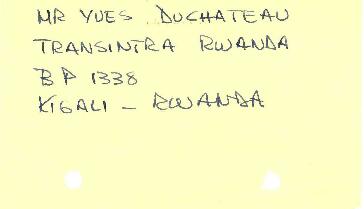 MR YVES DUCHATEAU
TRANSINTRA RWANDA
BP 1338
KIGALI - RWANDA